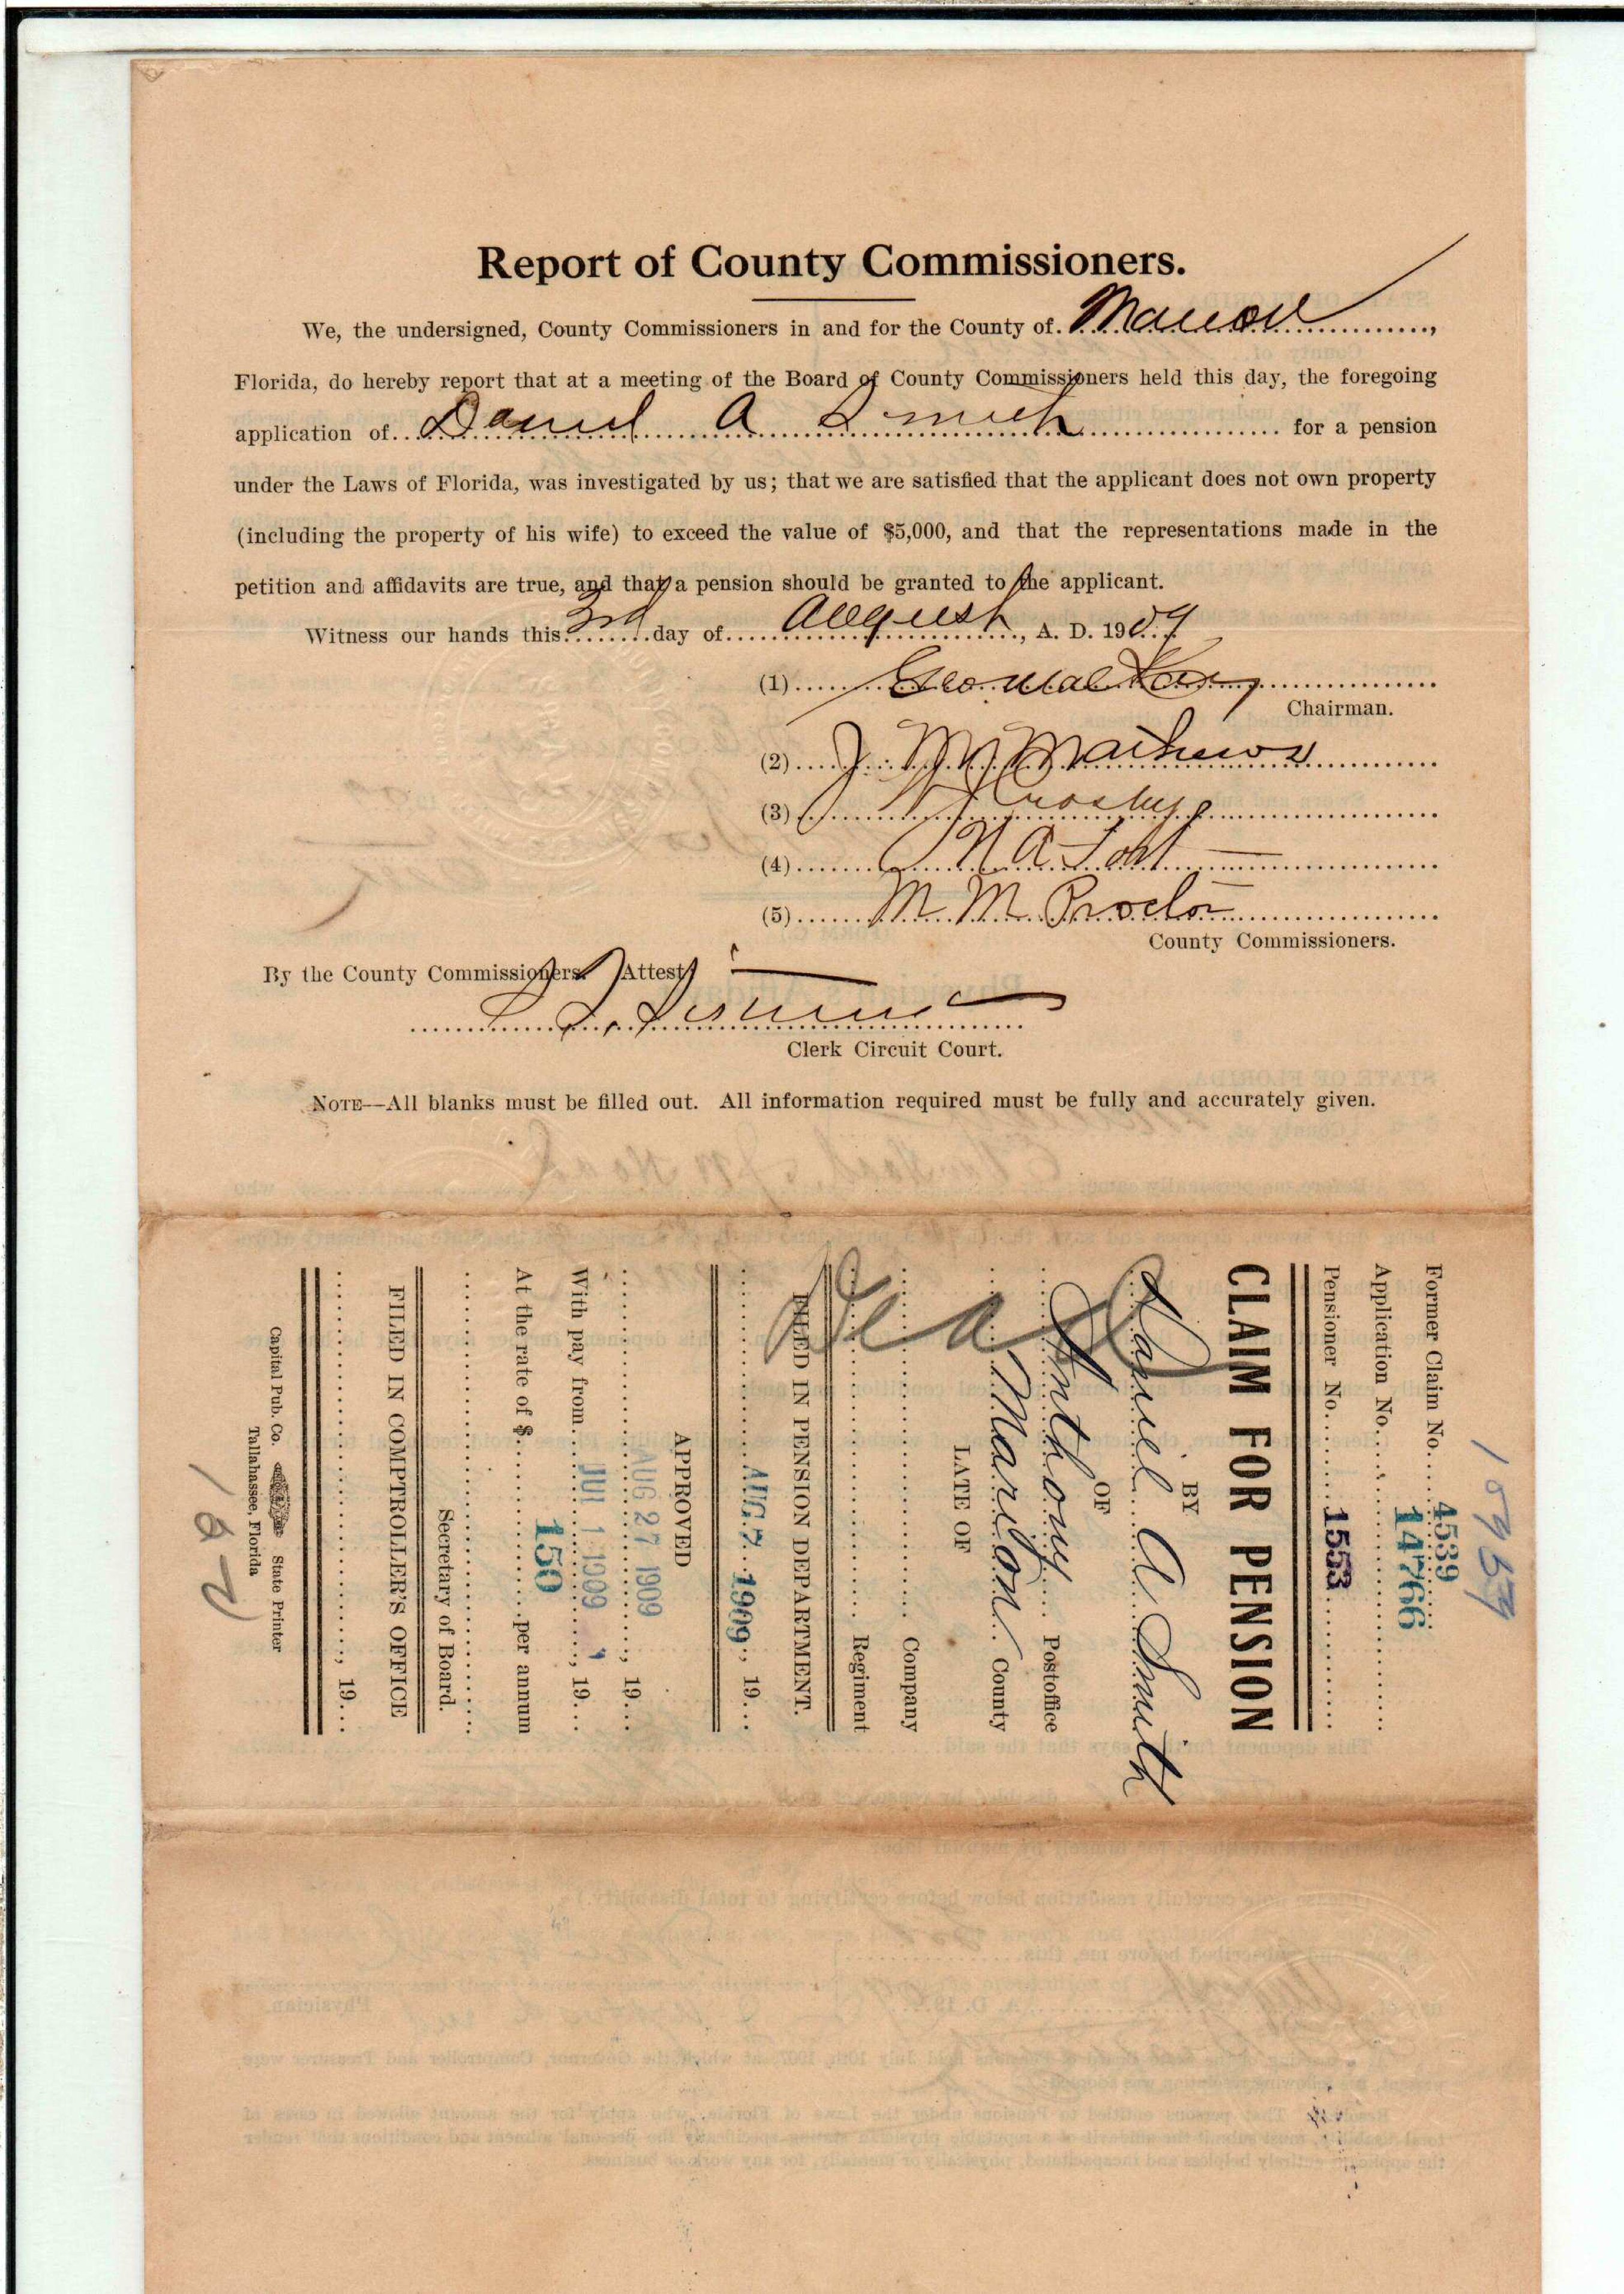 Report of County Commissioners.
We, the undersigned, County Commissioners in and for the County of Marion,
Florida, do hereby report that at a meeting of the Board of County Commissioners held this day, the foregoing
application of Daniel A Smith for a pension
under the Laws of Florida, was investigated by us; that we are satisfied that the applicant does not own property
(including the property of his wife) to exceed the value of $5,000, and that the representations made in the
petition and affidavits are true, and that a pension should be granted to the applicant.
Witness our hands this 3rd day of August, A. D. 1909
(1) Geo.
Chairman.
(2) J. M. Mathews
(3) Crosby
(4) N A Fort
(5) M. M. Proctor
County Commissioners.
By the County Commissioners. Attest
Clerk Circuit Court.
NOTE—All blanks must be filled out. All information required must be fully and accurately given.
Former Claim No. 4539
Application No. 14766
Pensioner No. 1553
CLAIM FOR PENSION
BY
Daniel A Smith
OF
Anthony Postoffice
Marion County
LATE OF
Company
Regiment
Dead
FILED IN PENSION DEPARTMENT.
AUG 7 1909, 19
APPROVED
AUG 27 1909, 19
With pay from JUL 1 1909, 19
At the rate of $ 150 per annum
Secretary of Board.
FILED IN COMPTROLLER'S OFFICE
, 19
Capital Pub. Co. State Printer
Tallahassee, Florida